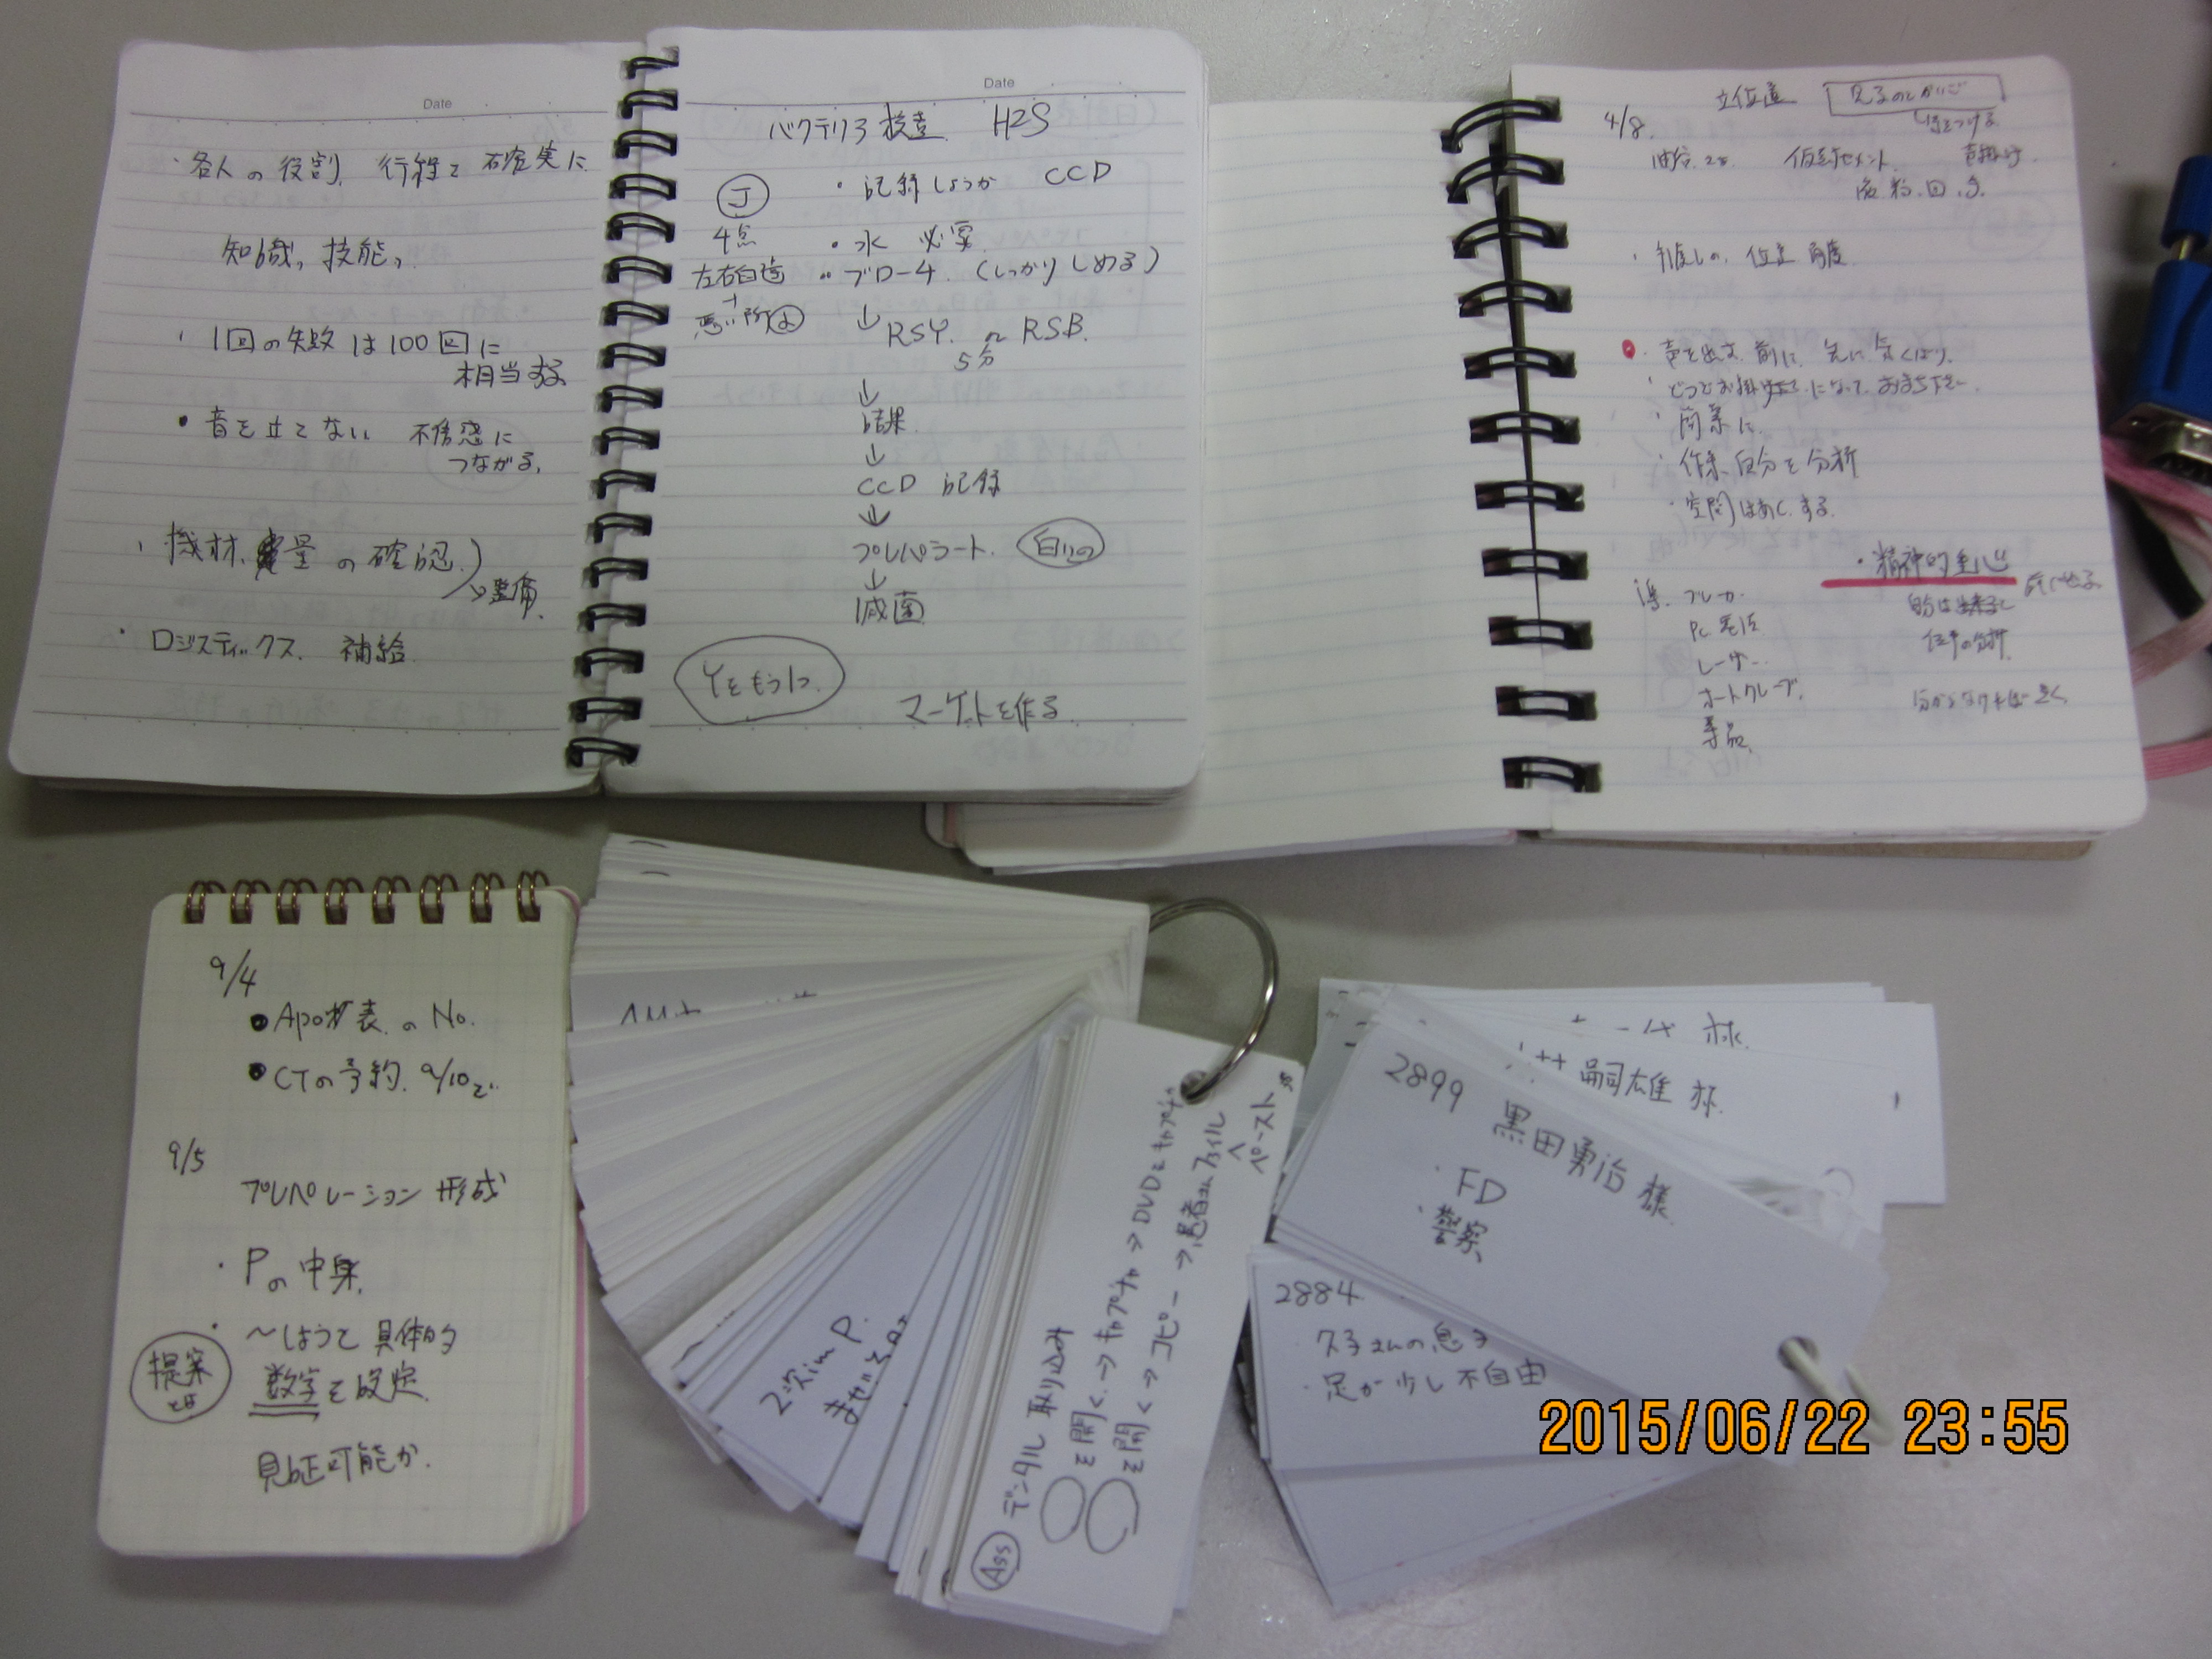 Date
・各人の役割、行程を確実に
知識、技能、
・1回の失敗は100回に
相当する
・音を立てない 不信感に
つながる、
・機材、量の確認
→整備
・ロジスティックス、補給
Date
バクテリア検査 H2S
J
・記録しようか CCD
4点
・水 必要
左右臼歯
ブローチ(しっかりしめる)
+
悪い所
↓
RSY. RSB.
5分
↓
結果
↓
CCD 記録
↓
プレパラート.
↓
滅菌
Yをもう1つ.
マーケットを作る
4/8. 立位置
仮封セメント
・手渡しの、位置 角度
・声を出す前に、先に気くばり、
・簡素に
・作業、自分を分析
・空間はあくする.
・精神的重心
レーザー
オートクレーブ、
9/4
・Apo表のNo.
・CTの予約. 9/10
9/5
プレパレーション 形成
・Pの中身、
・~しようと具体的
提案とは
数字を設定
可能か.
2次imp.
Ass
デンタル 取り込み
○を開く→キャプチャ→DVDをキャプチャ
○を開く→コピー→患者さんファイル
へ
ペースト
様
嗣雄 様
2899 黒田勇治 様
・FD
・警察
2884
久子さんの息子
・足が少し不自由
2015/06/22 23:55